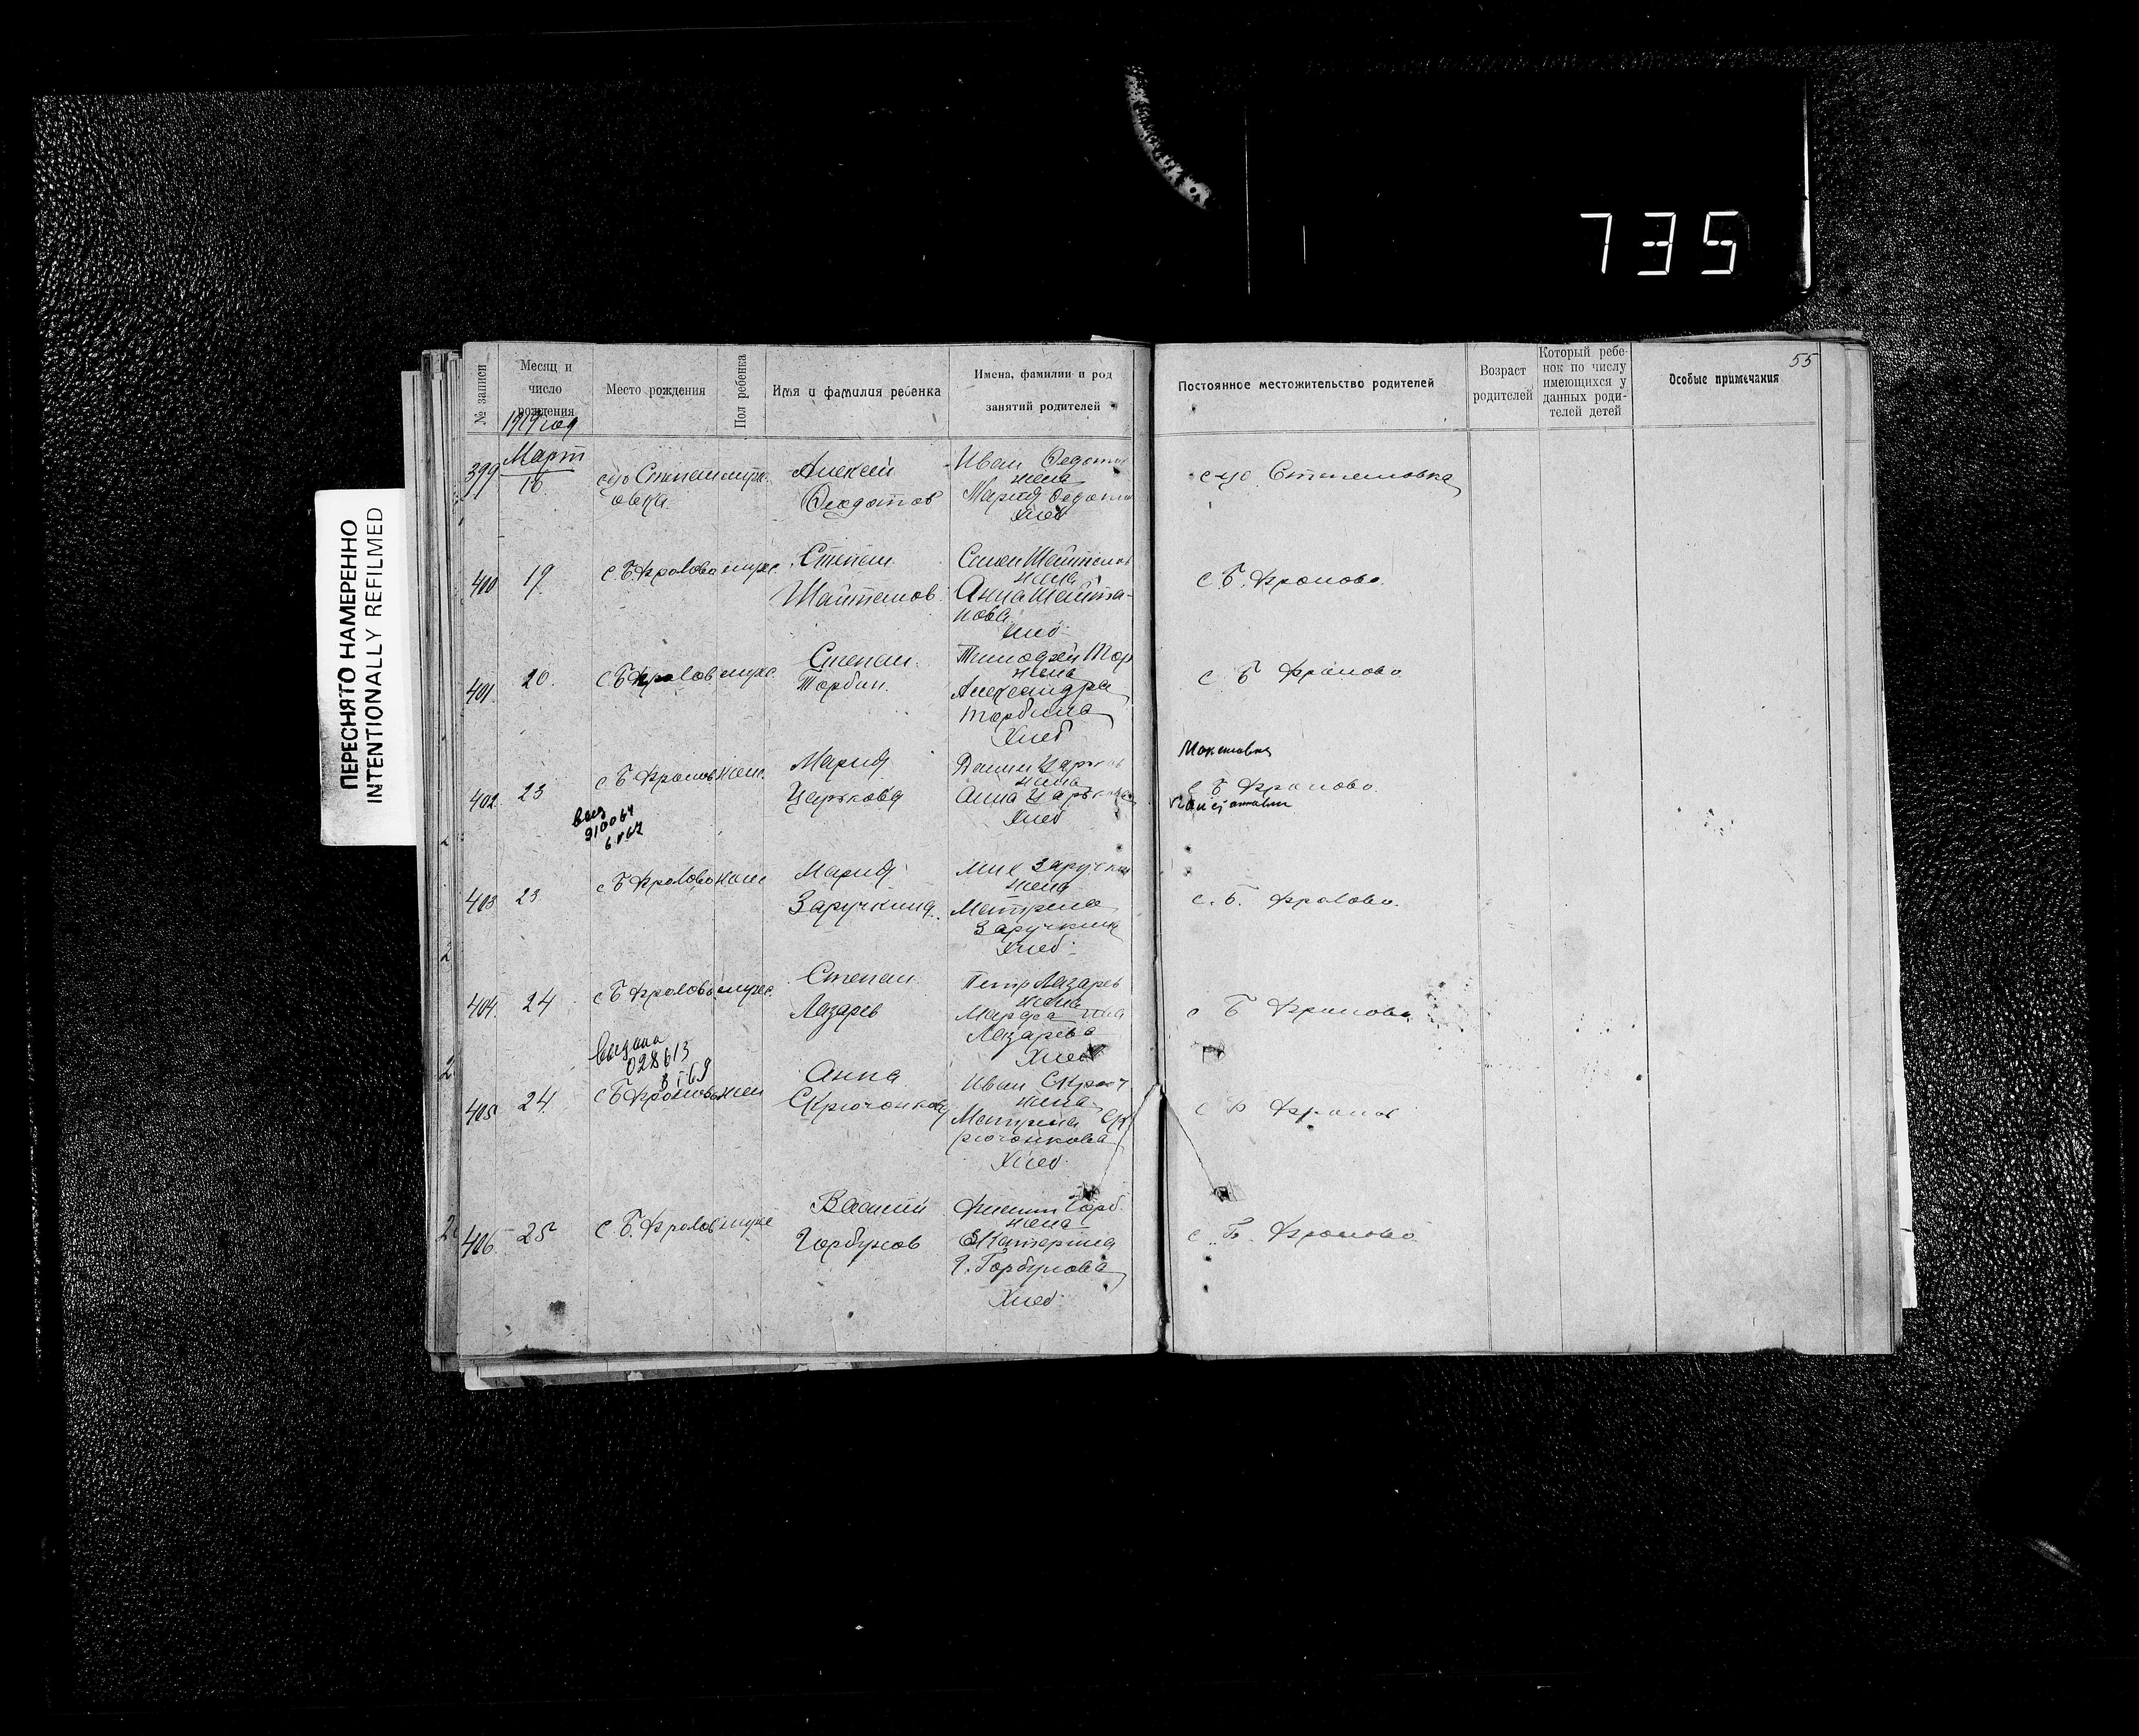 735
ПЕРЕСНЯТО НАМЕРЕННО
INTENTIONALLY REFILMED
55
№ записи
Месяц и число рождения
Место рождения
Пол ребенка
Имя и фамилия ребенка
Имена, фамилии и род занятий родителей
Постоянное местожительство родителей
Возраст родителей
Который ребенок по числу имеющихся у данных родителей детей
Особые примечания
1919 год
Март
399
16
Алексей
Федотов
Иван Федотов
жена
Мария
Хлеб
400
19
с. Б. Фролово
Степан
Шайтанов
Семен Шайтанов
жена
Анна Шайта-
нова
Хлеб
с Б. Фролово
401
20.
с. Б Фролов
Степан
Торбин.
Тимофей Тор
жена
Александра
Торбина
Хлеб
с Б Фролово
402
23
с Б Фролов жен.
Мария
Царькова
жена
Анна Царькова
Хлеб
с Б Фролово
910064
403
23
с Б Фролово жен
Мария
Заручкина
Мих Заручкин
жена
Матрена
Заручкина
Хлеб
с. Б. Фролово.
404.
24
с Б Фролово
Степан
Лазарев
Петр Лазарев
жена
Марфа
Лазарева
Хлеб
с Б Фролово
выдана
028613
405
24
с Б Фролово жен
Анна
Скрючонкова
Иван Скрюч
жена
Матрена Ск
рючонкова
Хлеб
с Б Фролов
406
25
с. Б. Фролов
Василий
Горбунов
Филипп Горб.
жена
Екатерина
Горбунова
Хлеб
с. Б. Фролово